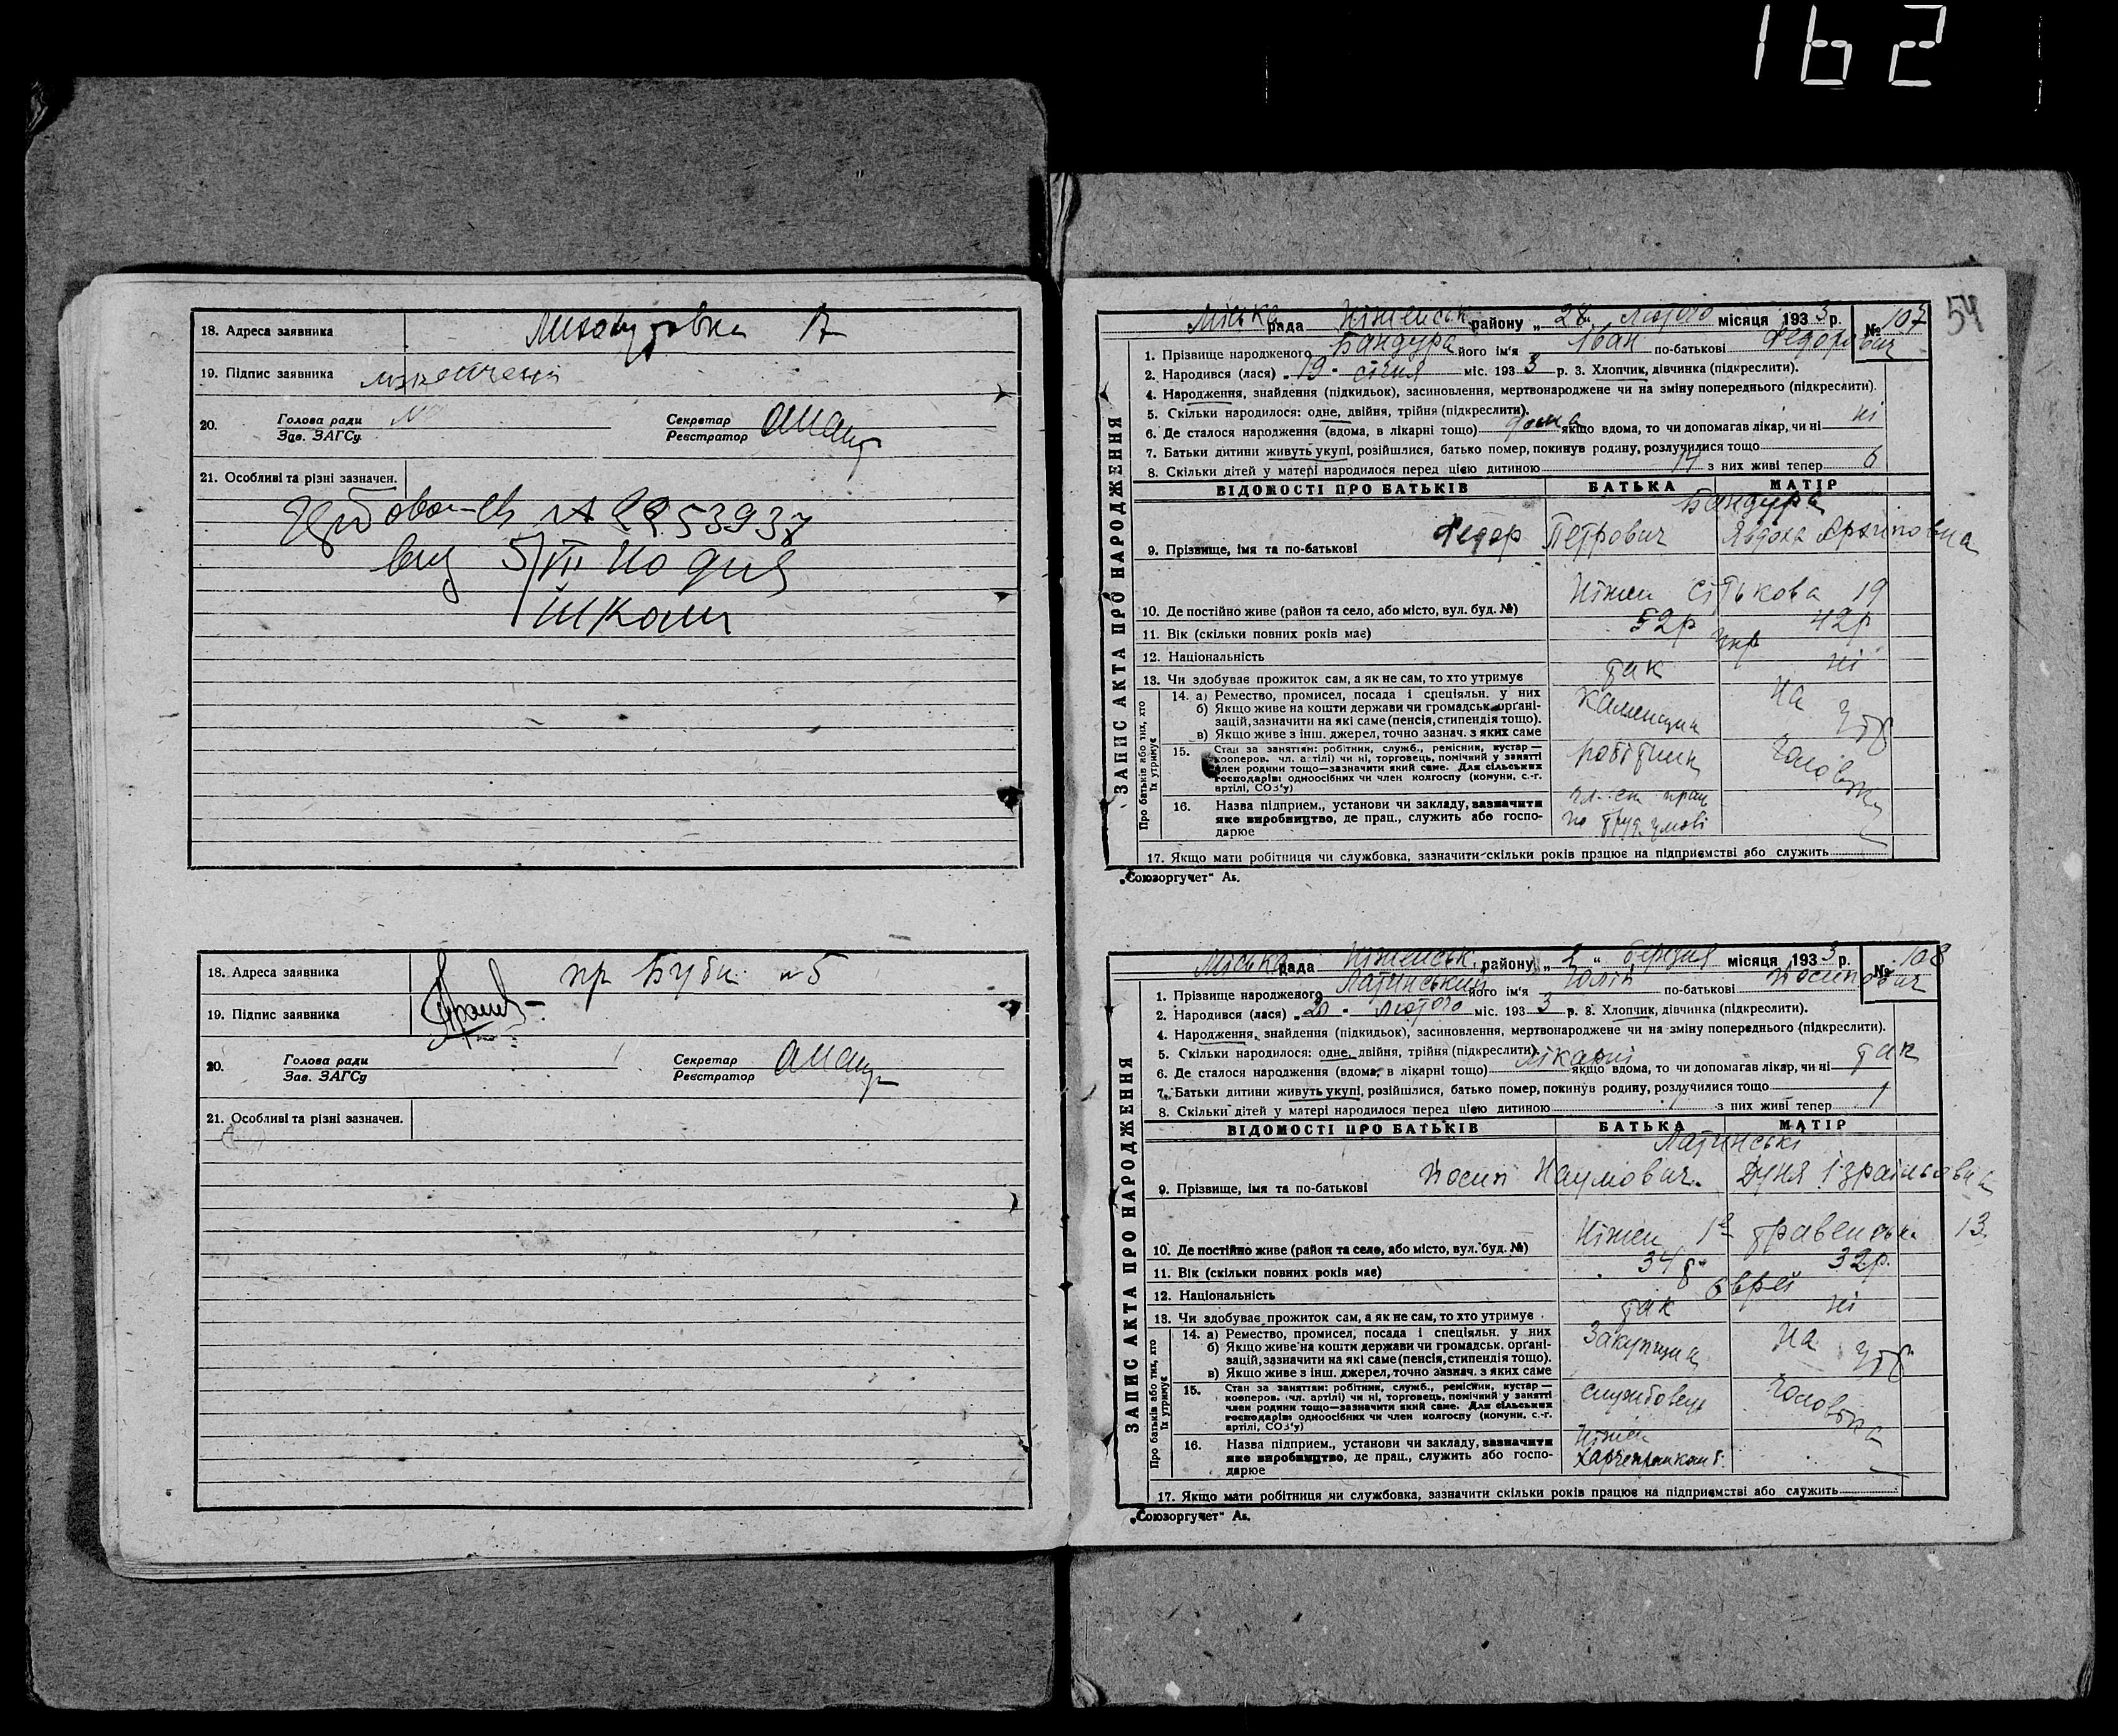 162
18. Адреса заявника
17
19. Підпис заявника
20. Голова ради
Зав. ЗАГСу
Секретар
Реєстратор
21. Особливі та різні зазначен.
від 5/VII
школи
18. Адреса заявника пр Буби №5
19. Підпис заявника
20. Голова ради
Зав. ЗАГСу
Секретар
Реєстратор
21. Особливі та різні зазначен.
54
ЗАПИС АКТА ПРО НАРОДЖЕННЯ
Міська рада Ніженськ. району „28“ лютого місяця 1933 р. № 107
1. Прізвище народженого Бандура його ім'я Іван по-батькові Федорович
2. Народився (лася) „19“ січня міс. 1933 р. 3. Хлопчик, дівчинка (підкреслити).
4. Народження, знайдення (підкидьок), засиновлення, мертвонароджене чи на зміну попереднього (підкреслити).
5. Скільки народилося: одне, двійня, трійня (підкреслити).
6. Де сталося народження (вдома, в лікарні тощо) дома якщо вдома, то чи допомагав лікар, чи ні ні
7. Батьки дитини живуть укупі, розійшлися, батько помер, покинув родину, розлучилися тощо
8. Скільки дітей у матері народилося перед цією дитиною 14 з них живі тепер 6
ВІДОМОСТІ ПРО БАТЬКІВ БАТЬКА МАТІР
Бандура
9. Прізвище, ім'я та по-батькові Федор Петрович Явдоха Архиповна
10. Де постійно живе (район та село, або місто, вул. буд. №) Ніжен Сітькова 19
11. Вік (скільки повних років має) 52р 42р
12. Національність укр
13. Чи здобуває прожиток сам, а як не сам, то хто утримує так ні
Про батьків або тих, хто їх утримує
14. а) Ремество, промисел, посада і спеціяльн. у них
б) Якщо живе на кошти держави чи громадськ. органі-
зацій, зазначити на які саме (пенсія, стипендія тощо).
в) Якщо живе з інш. джерел, точно зазнач. з яких саме
каменщик на утр
15. Стан за заняттям: робітник, служб., ремісник, кустар —
кооперов. чл. артілі) чи ні, торговець, помічний у занятті
член родини тощо—зазначити який саме. Для сільських
господарів: одноосібних чи член колгоспу (комуни, с.-г.
артілі, СОЗ'у)
робітник чоловіка
16. Назва підприєм., установи чи закладу, зазначити
яке виробництво, де прац., служить або госпо-
дарює
по труд умові
17. Якщо мати робітниця чи службовка, зазначити скільки років працює на підприємстві або служить
„Союзоргучет“ Аз.
ЗАПИС АКТА ПРО НАРОДЖЕННЯ
Міська рада Ніженськ. району „2“ березня місяця 1933 р. № 108
1. Прізвище народженого Латинський його ім'я Юлій по-батькові Йосипович
2. Народився (лася) „20“ лютого міс. 1933 р. 3. Хлопчик, дівчинка (підкреслити).
4. Народження, знайдення (підкидьок), засиновлення, мертвонароджене чи на зміну попереднього (підкреслити).
5. Скільки народилося: одне, двійня, трійня (підкреслити).
6. Де сталося народження (вдома, в лікарні тощо) лікарні якщо вдома, то чи допомагав лікар, чи ні так
7. Батьки дитини живуть укупі, розійшлися, батько помер, покинув родину, розлучилися тощо
8. Скільки дітей у матері народилося перед цією дитиною 1 з них живі тепер 1
ВІДОМОСТІ ПРО БАТЬКІВ БАТЬКА МАТІР
Латинські
9. Прізвище, ім'я та по-батькові Йосип Наумович Дуня Ізраільовна
10. Де постійно живе (район та село, або місто, вул. буд. №) Ніжен 1е травенська 13
11. Вік (скільки повних років має) 34р 32р.
12. Національність євреї
13. Чи здобуває прожиток сам, а як не сам, то хто утримує так ні
Про батьків або тих, хто їх утримує
14. а) Ремество, промисел, посада і спеціяльн. у них
б) Якщо живе на кошти держави чи громадськ. органі-
зацій, зазначити на які саме (пенсія, стипендія тощо).
в) Якщо живе з інш. джерел, точно зазнач. з яких саме
Закупщик на утр
15. Стан за заняттям: робітник, служб., ремісник, кустар —
кооперов. чл. артілі) чи ні, торговець, помічний у занятті
член родини тощо—зазначити який саме. Для сільських
господарів: одноосібних чи член колгоспу (комуни, с.-г.
артілі, СОЗ'у)
службовець чоловіка
16. Назва підприєм., установи чи закладу, зазначити
яке виробництво, де прац., служить або госпо-
дарює
Ніжен
17. Якщо мати робітниця чи службовка, зазначити скільки років працює на підприємстві або служить
„Союзоргучет“ Аз.